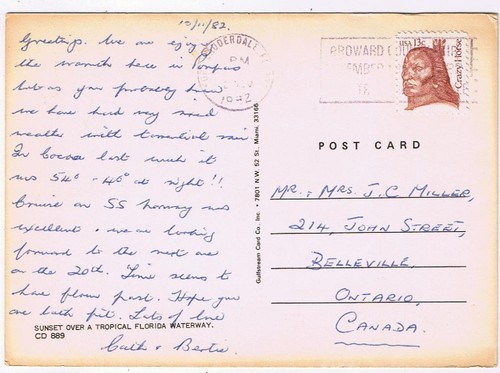 15/11/82.
Greetings. We are enjoying
the warmth here in
but as you probably know
we have had very mixed
weather with torrential rain.
In Cocoa last week it
was 54° - 40° at night!!
Cruise on SS Norway was
excellent & we are looking
forward to the next one
on the 20th. Time seems to
have flown past. Hope you
are both fit. Lots of love
Cath & Bertie.
SUNSET OVER A TROPICAL FLORIDA WATERWAY.
CD 889
Gulfstream Card Co., Inc. • 7801 N.W. 52 St., Miami, 33166
LAUDERDALE, FL
PM
1982
BROWARD
USA 13c
Crazy Horse
POST CARD
MR. & MRS. J. C MILLER,
214, JOHN STREET,
BELLEVILLE.
ONTARIO,
CANADA.